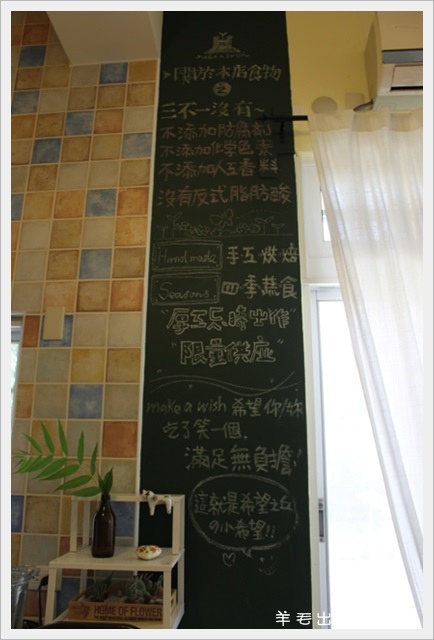 make a wish
➤關於本店食物
之
三不一沒有~
不添加防腐劑
不添加化学色素
不添加人工香料
沒有反式脂肪酸
Handmade 手工烘焙
Seasons 四季蔬食
"厚工忘時出作"
"限量供应"
make a wish 希望你/妳
吃了笑一個.
滿足無負擔!
這就是希望之丘
の小希望!!
HOME OF FLOWER
羊毛出